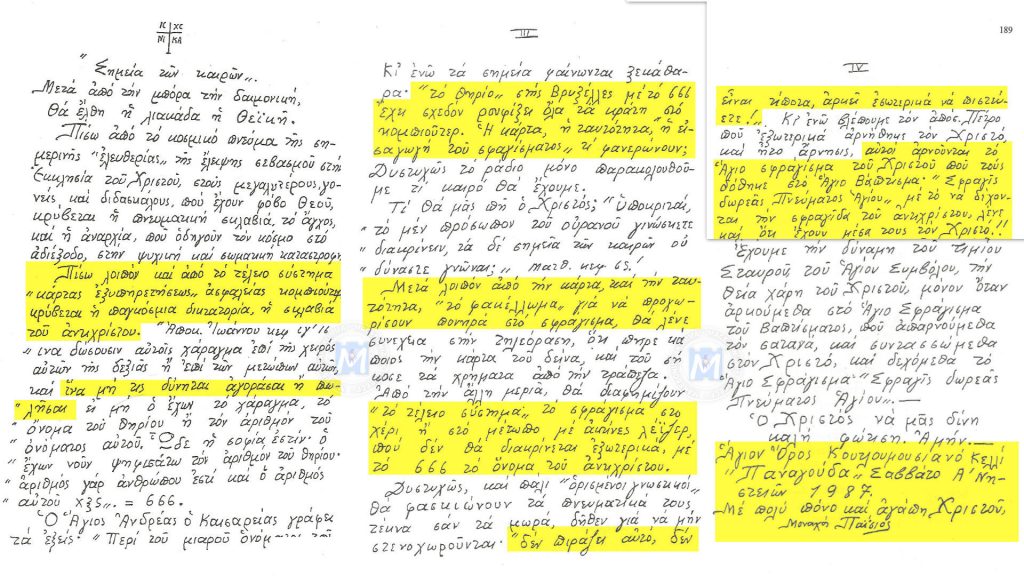 IC XC
NI KA
"Σημεία τῶν καιρῶν„.
Μετά ἀπό τήν μπόρα τήν δαιμονική,
θά ἔλθη ἡ λιακάδα ἡ Θεϊκή.
Πίσω ἀπό τό κοσμικό πνεῦμα τῆς ση-
μερινῆς "ἐλευθερίας„ τῆς ἔλειψης σεβασμοῦ στή
Ἐκκλησία τοῦ Χριστοῦ, στούς μεγαλυτέρους, γο-
νεῖς καί διδασκάλους, πού ἔχουν φόβο Θεοῦ,
κρύβεται ἡ πνευματική σκλαβιά, τό ἄγχος,
καί ἡ ἀναρχία, πού ὁδηγοῦν τόν κόσμο στό
ἀδιέξοδο, στήν ψυχική καί σωματική καταστροφή.
Πίσω λοιπόν καί ἀπό τό τέλειο σύστημα
"κάρτας ἐξυπηρετήσεως„ ἀσφαλείας κομπιοῦτερ
κρύβεται ἡ παγκόσμια δικτατορία, ἡ σκλαβιά
τοῦ ἀντιχρίστου. "Ἀποκ. Ἰωάννου κεφ ιγ' 16
"ἵνα δώσουσιν αὐτοῖς χάραγμα ἐπί τῆς χειρός
αὐτῶν τῆς δεξιᾶς ἤ ἐπί τῶν μετώπων αὐτῶν,
καί ἵνα μή τις δύνηται ἀγοράσαι ἤ πω-
"λῆσαι εἰ μή ὁ ἔχων τό χάραγμα, τό
"ὄνομα τοῦ θηρίου ἤ τόν ἀριθμόν τοῦ
"ὀνόματος αὐτοῦ. Ὧδε ἡ σοφία ἐστίν· ὁ
"ἔχων νοῦν ψηφισάτω τόν ἀριθμόν τοῦ θηρίου.
"ἀριθμός γάρ ἀνθρώπου ἐστί καί ὁ ἀριθμός
"αὐτοῦ χξς„. = 666.
Ὁ Ἅγιος Ἀνδρέας ὁ Καισαρείας γράφει
τά ἑξῆς: "Περί τοῦ μιαροῦ ὀνόματος τοῦ
III
Κι' ἐνῶ τά σημεῖα φαίνωνται ξεκάθα-
ρα· "τό θηρίο„ στής Βρυξέλλες μέ τό 666
ἔχει σχεδόν ρουφίξει ὅλα τά κράτη στό
κομπιοῦτερ. Ἡ κάρτα, ἡ ταυτότητα, ἡ εἰ-
σαγωγή τοῦ σφραγίσματος τί φανερώνουν;
Δυστυχῶς τό ράδιο μόνο παρακολουθοῦ-
με τί καιρό θά ἔχουμε.
Τί θά μᾶς πῆ ὁ Χριστός; "ὑποκριταί,
τό μέν πρόσωπον τοῦ οὐρανοῦ γινώσκετε
διακρίνειν, τά δέ σημεῖα τῶν καιρῶν οὐ
δύνασθε γνῶναι;„ Ματθ. κεφ
Μετά λοιπόν ἀπό τήν κάρτα, καί τήν ταυ-
τότητα, "τό φακέλλωμα„ γιά νά προχω-
ρίσουν πονηρά στό σφράγισμα, θά λένε
συνέχεια στήν τηλεόραση, ὅτι πῆρε κά-
ποιος τήν κάρτα τοῦ δεῖνα, καί τοῦ σή
κωσε τά χρήματα ἀπό τήν τράπεζα.
Ἀπό τήν ἄλλη μεριά, θά διαφημίζουν
"τό τέλειο σύστημα„ τό σφράγισμα στό
χέρι ἤ στό μέτωπο μέ ἀκτῖνες λέϊζερ,
πού δέν θά διακρίνεται ἐξωτερικά, μέ
τό 666 τό ὄνομα τοῦ ἀντιχρίστου.
Δυστυχῶς, καί πάλι "ὁρισμένοι γνωστικοί„
θά φασκιώνουν τά πνευματικά τους
τέκνα σάν τά μωρά, δῆθεν γιά νά μήν
στενοχωροῦνται. "δέν πιράζει αὐτό, δέν
189
IV
εἶναι τίποτα, ἀρκεῖ ἐσωτερικά νά πιστεύ-
ετε!„. Κι' ἐνῶ βλέπουμε τόν ἀπόσ. Πέτρο
πού ἐξωτερικά ἀρνήθηκε τόν Χριστό,
καί ἦτο ἄρνησις, αὐτοί ἀρνοῦνται τό
Ἅγιο σφράγισμα τοῦ Χριστοῦ πού τούς
δόθηκε στό Ἅγιο Βάπτισμα "Σφραγίς
δωρεᾶς Πνεύματος Ἁγίου„, μέ τό νά δέχον-
ται τήν σφραγίδα τοῦ ἀντιχρίστου, λένε
καί ὅτι ἔχουν μέσα τους τόν Χριστό.!!
Ἔχουμε τήν δύναμη τοῦ Τιμίου
Σταυροῦ, τοῦ Ἁγίου Συμβόλου, τήν
θεία χάρη τοῦ Χριστοῦ, μόνον ὅταν
ἀρκούμεθα στό Ἅγιο Σφράγισμα
τοῦ Βαπτίσματος, πού ἀπαρνούμεθα
τόν σατανᾶ, καί συντασσώμεθα
στόν Χριστό, καί δεχόμεθα τό
Ἅγιο Σφράγισμα "Σφραγίς δωρεᾶς
Πνεύματος Ἁγίου„.—
Ὁ Χριστός νά μᾶς δίνη
καλή φώτιση. Ἀμήν.—
Ἅγιον Ὄρος Κουτλουμουσιανό Κελλί
"Παναγούδα„ Σάββατο Α' Νη-
στειῶν 1987.
Μέ πολύ πόνο καί ἀγάπη Χριστοῦ,
Μοναχός Παΐσιος